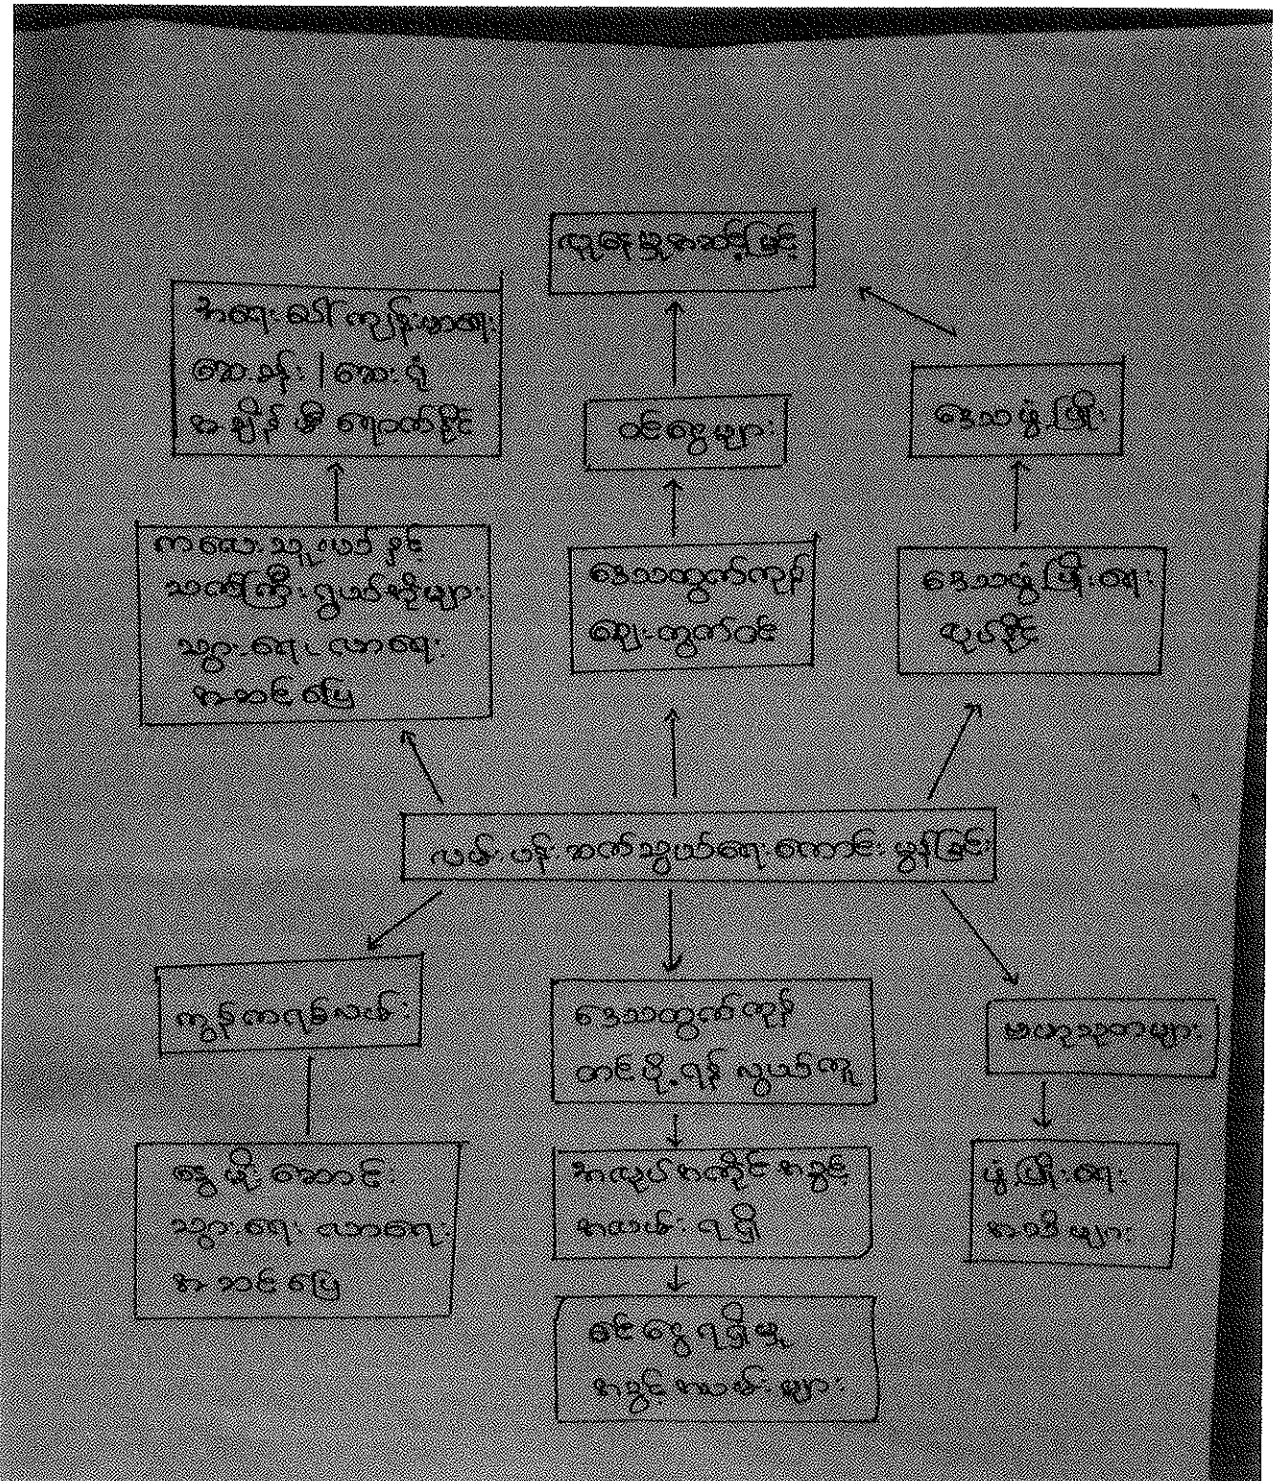 လူနေမှုအဆင့်မြင့်
အရေးပေါ်ကျန်းမာရေး
ဆေးခန်း | ဆေးရုံ
အချိန်မီ ရောက်နိုင်
ဝင်ငွေများ
ဒေသဖွံ့ဖြိုး
ကလေးသူငယ်နှင့်
သက်ကြီးရွယ်အိုများ
သွားရေးလာရေး
အဆင်ပြေ
ဒေသထွက်ကုန်
ဈေးကွက်ဝင်
ဒေသဖွံ့ဖြိုးရေး
လုပ်နိုင်
လမ်းပန်းဆက်သွယ်ရေးကောင်းမွန်ခြင်း
ကွန်ကရစ်လမ်း
ဒေသထွက်ကုန်
တင်ပို့ရန် လွယ်ကူ
ဗဟုသုတများ
နွေ မိုး ဆောင်း
သွားရေး လာရေး
အဆင်ပြေ
အလုပ်အကိုင်အခွင့်
အလမ်းရရှိ
ဖွံ့ဖြိုးရေး
အသိများ
ဝင်ငွေရရှိမှု
အခွင့်အလမ်းများ